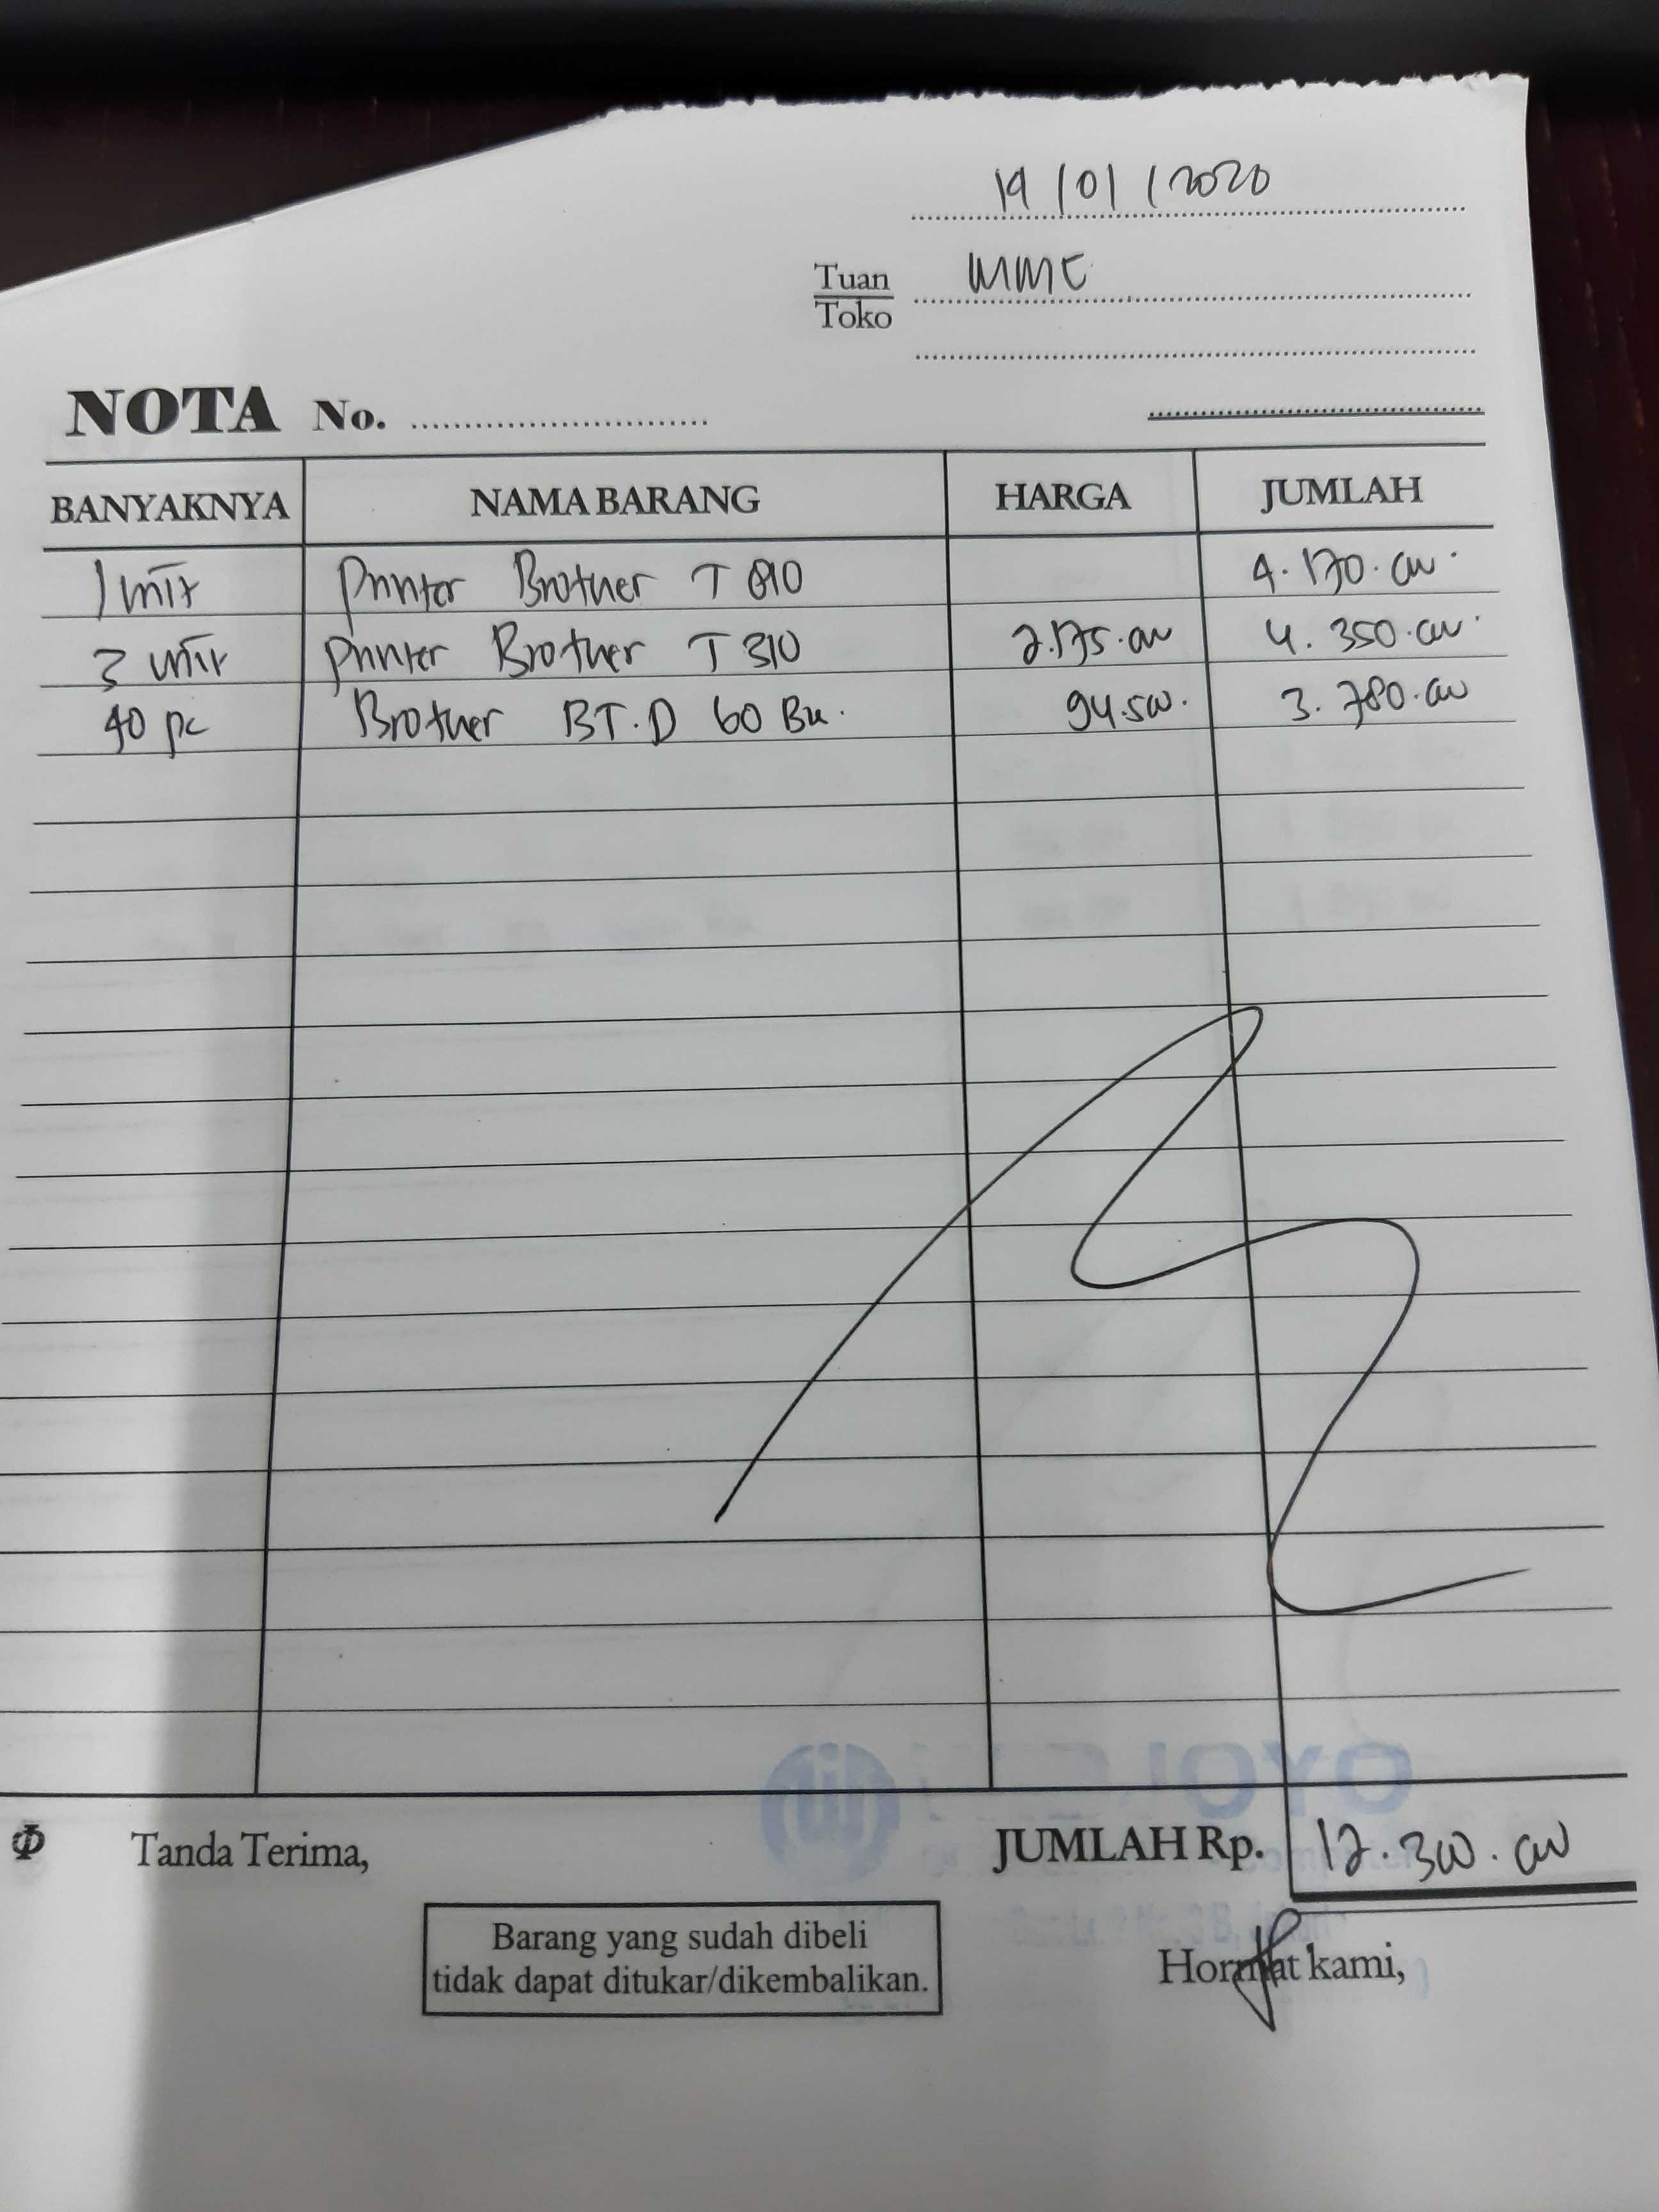 19/01/2020
Tuan
Toko
MMC
NOTA No.
BANYAKNYA NAMA BARANG HARGA JUMLAH
1 unit Printer Brother T 810 4.170.000
3 unit Printer Brother T 310 2.175.000 4.350.000
40 pc Brother BT.D 60 Bk. 94.500. 3.780.000
Φ Tanda Terima, JUMLAH Rp. 12.300.000
Barang yang sudah dibeli
tidak dapat ditukar/dikembalikan.
Hormat kami,